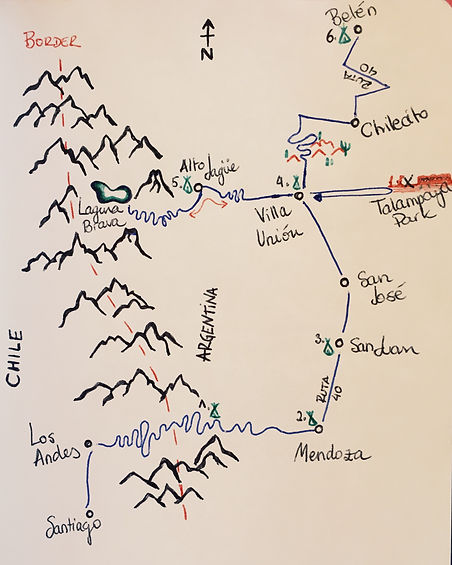 Belén
6.
BORDER
N
RUTA
40
Chilecito
Alto Jagüe
5.
4.
Talampaya
Park
Laguna
Brava
Villa
Unión
San
José
ARGENTINA
CHILE
3.
San Juan
RUTA
40
1.
2.
Los
Andes
Mendoza
Santiago